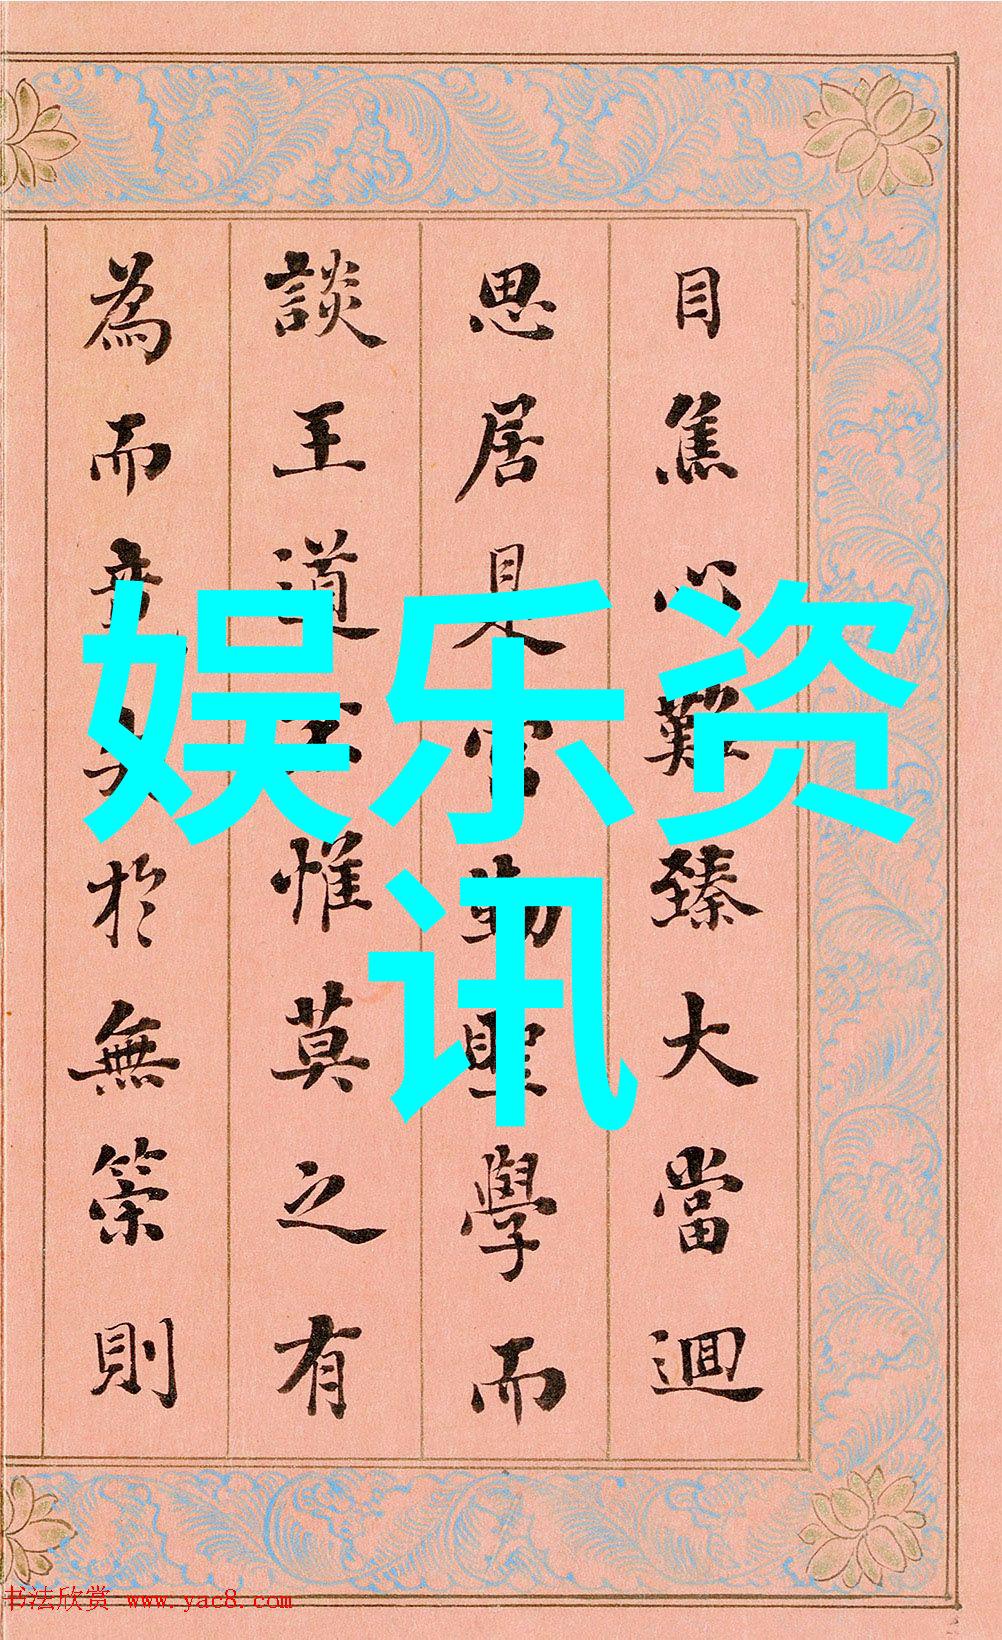 目焦心難臻大當迴
思居勤聖學而
談王道惟莫之有
為而於無策則
娱乐资
讯
书法欣赏 www.yac8.com